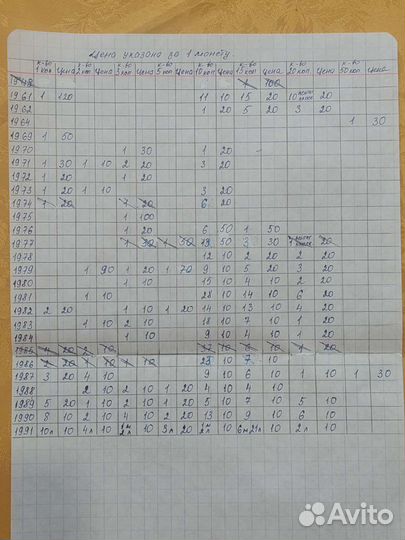 Цена указана за 1 монету.
к-во 1 коп цена к-во 2 коп цена к-во 3 коп цена к-во 5 коп цена к-во 10 коп цена к-во 15 коп цена к-во 20 коп цена к-во 50 коп цена
1 100
1961 1 120 11 10 15 20 10 20
1962 1 20 5 20 3 20
1964 1 30
1969 1 50
1970 1 30 1 20
1971 1 30 1 10 2 20 3 20
1972 1 20 1 20
1973 1 20 1 10 3 20
1974 1 20 1 20 6 20
1975 1 100
1976 1 20 6 50 1 50
1977 1 1 50 3 30 20
1978 12 10 2 20 2 20
1979 1 90 1 20 1 70 9 10 5 20 3 20
1980 1 10 15 10 4 10 2 20
1981 1 10 28 10 14 10 6 20
1982 2 20 1 10 1 20 14 10 13 10 4 20
1983 1 10 2 10 18 10 7 10 1 20
1984 1 10 9 10 4 10 1 20
1985 4 20 2 10 17 10 6 10 1 20
1986 2 20 1 10 1 10 23 10 7 10
1987 3 20 4 10 9 10 6 10 1 10 1 30
1988 2 10 2 10 1 20 4 10 4 10
1989 5 20 1 10 2 10 1 20 5 10 7 10 5 10
1990 8 10 2 10 4 10 2 20 13 10 9 10 6 10
1991 10л 10 4л 10 1м 2л 10 3л 20 1м 2л 10 6м 21л 10 2л 10
Avito